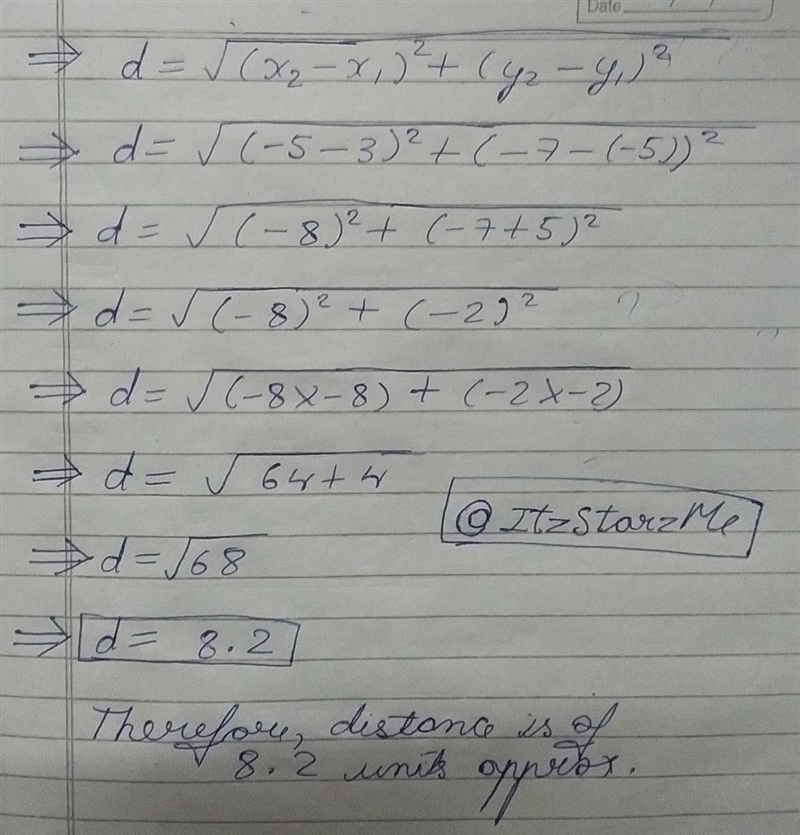 Date
⇒ d = √(x₂ - x₁)² + (y₂ - y₁)²
⇒ d = √(-5 - 3)² + (-7 - (-5))²
⇒ d = √(-8)² + (-7+5)²
⇒ d = √(-8)² + (-2)²
⇒ d = √(-8x-8) + (-2x-2)
⇒ d = √64+4
@ItzStarzMe
⇒ d = √68
⇒ d = 8.2
Therefore, distance is of
8.2 units approx.